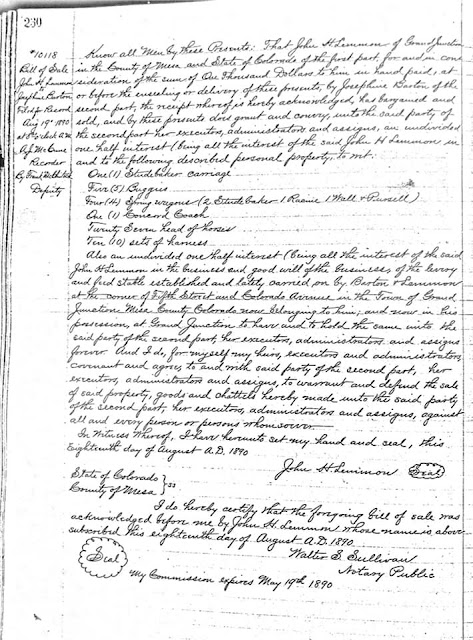 230
#10118
Bill of Sale
John H Lemmon
to
Josephine Barton
Filed for Record
Aug 19th 1890
at 8 o'clock a.m.
Recorder
Deputy
Know all Men by these Presents: That John H Lemmon of Grand Junction
in the County of Mesa and State of Colorado of the first part, for and in con
sideration of the sum of One Thousand Dollars to him in hand paid, at
or before the ensealing or delivery of these presents, by Josephine Barton of the
second part, the receipt whereof is hereby acknowledged, has bargained and
sold, and by these presents does grant and convey, unto the said party of
the second part her executors, administrators and assigns, an undivided
one half interest (being all the interest of the said John H Lemmon in
and to the following described personal property, to wit:
One (1) Studebaker carriage
Five (5) Buggies
Four (4) Spring wagons (2 Studebaker 1 Racine 1 Wall & Russell)
One (1) Concord Coach
Twenty Seven head of horses
Ten (10) sets of harness
Also an undivided one half interest (being all the interest of the said
John H Lemmon in the business and good will of the business, of the livery
and feed stable established and lately carried on by Barton & Lemmon
at the corner of Fifth Street and Colorado Avenue in the Town of Grand
Junction Mesa County Colorado now belonging to him, and now in his
possession, at Grand Junction to have and to hold the same unto the
said party of the second part, her executors, administrators and assigns
forever And I do, for myself my heirs, executors and administrators,
covenant and agree, to and with said party of the second part, her
executors, administrators and assigns, to warrant and defend the sale
of said property, goods and chattels hereby made unto the said party
of the second part, her executors, administrators and assigns, against
all and every person or persons whomsoever.
In Witness Whereof, I have hereunto set my hand and seal, this
Eighteenth day of August A.D. 1890
John H Lemmon Seal
State of Colorado } ss
County of Mesa
I do hereby certify that the foregoing bill of sale was
acknowledged before me by John H. Lemmon whose name is above
subscribed this eighteenth day of August A.D. 1890.
Seal
Walter S. Sullivan
Notary Public
My Commission expires May 19th 1890